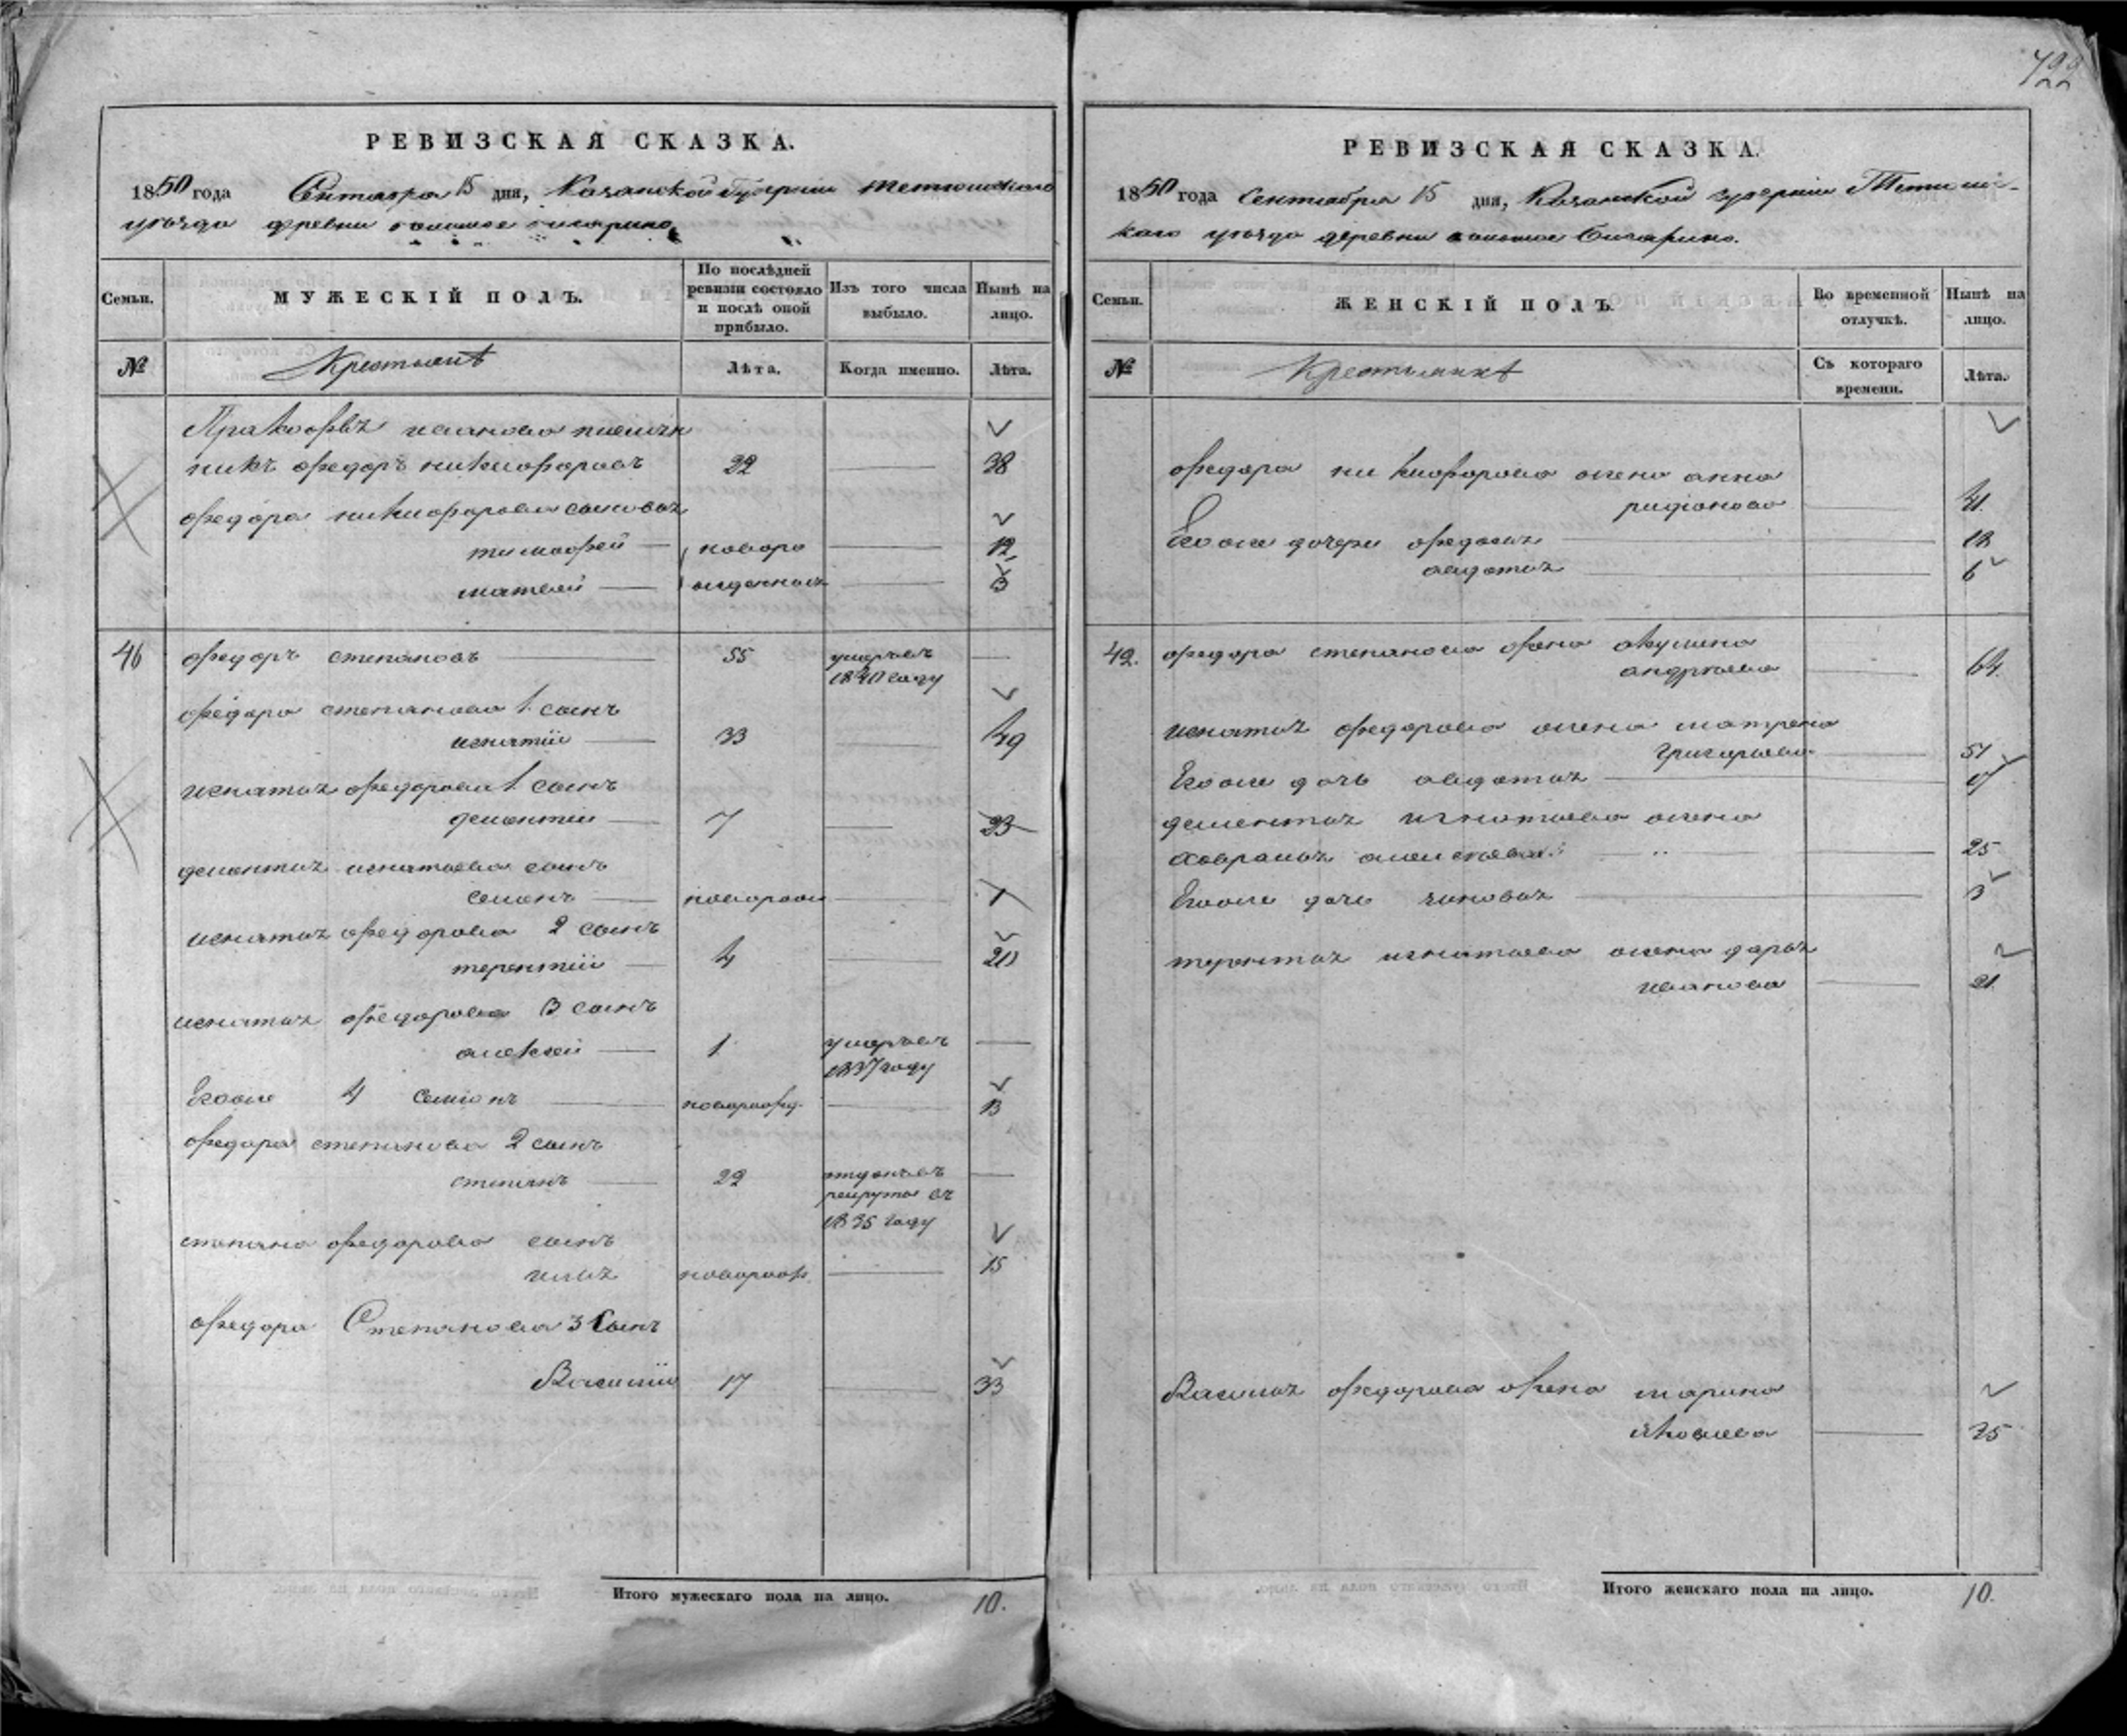 422
РЕВИЗСКАЯ СКАЗКА.
1850 года Сентября 15 дня, Казанской Губернии тетюшского
уезда деревни большое
Семьи.
МУЖЕСКІЙ ПОЛЪ.
По послѣдней ревизіи состояло и послѣ оной прибыло.
Изъ того числа выбыло.
Нынѣ на лицо.
№
Крестьянѣ
Лѣта.
Когда именно.
Лѣта.
Пракофья иванова племян
никъ федоръ никифоровъ 22 38
федора никифорова сыновья
тимофей новоро 12
матвей жденныя 3
46 федоръ степановъ 55 умеръ въ
1840 году
федора степанова 1. сынъ
игнатій 33 49
игнатья федорова 1. сынъ
дементій 7 23
дементья игнатьева сынъ
семенъ новорож 1
игнатья федорова 2 сынъ
терентій 4 20
игнатья федорова 3 сынъ
алексей 1 умеръ въ
1837 году
Егоже 4 семіонъ новорожд. 13
федора степанова 2 сынъ
степанъ 22 отданъ въ
рекруты въ
1835 году
степана федорова сынъ
илья новорож. 15
федора Степанова 3 Сынъ
Василий 17 33
Итого мужескаго пола на лицо. 10.
РЕВИЗСКАЯ СКАЗКА.
1850 года Сентября 15 дня, Казанской губерніи Тетюш-
каго уезда деревни большое Бисарино.
Семьи.
ЖЕНСКІЙ ПОЛЪ.
Во временной отлучкѣ.
Нынѣ на лицо.
№
Крестьянкѣ
Съ котораго времени.
Лѣта.
федора никифорова жена анна
радіонова 41.
Его же дочери федосья 12
авдотья 6
42. федора степанова жена акулина
андреева 64.
игнатья федорова жена матрена
григорьева 51
Егоже дочь авдотья
дементья игнатьева жена
хавранья алексеева 25
Егоже дочь зиновья 3
терентья игнатьева жена дарья
иванова 21
Василья федорова жена марина
яковлева 35
Итого женскаго пола на лицо. 10.